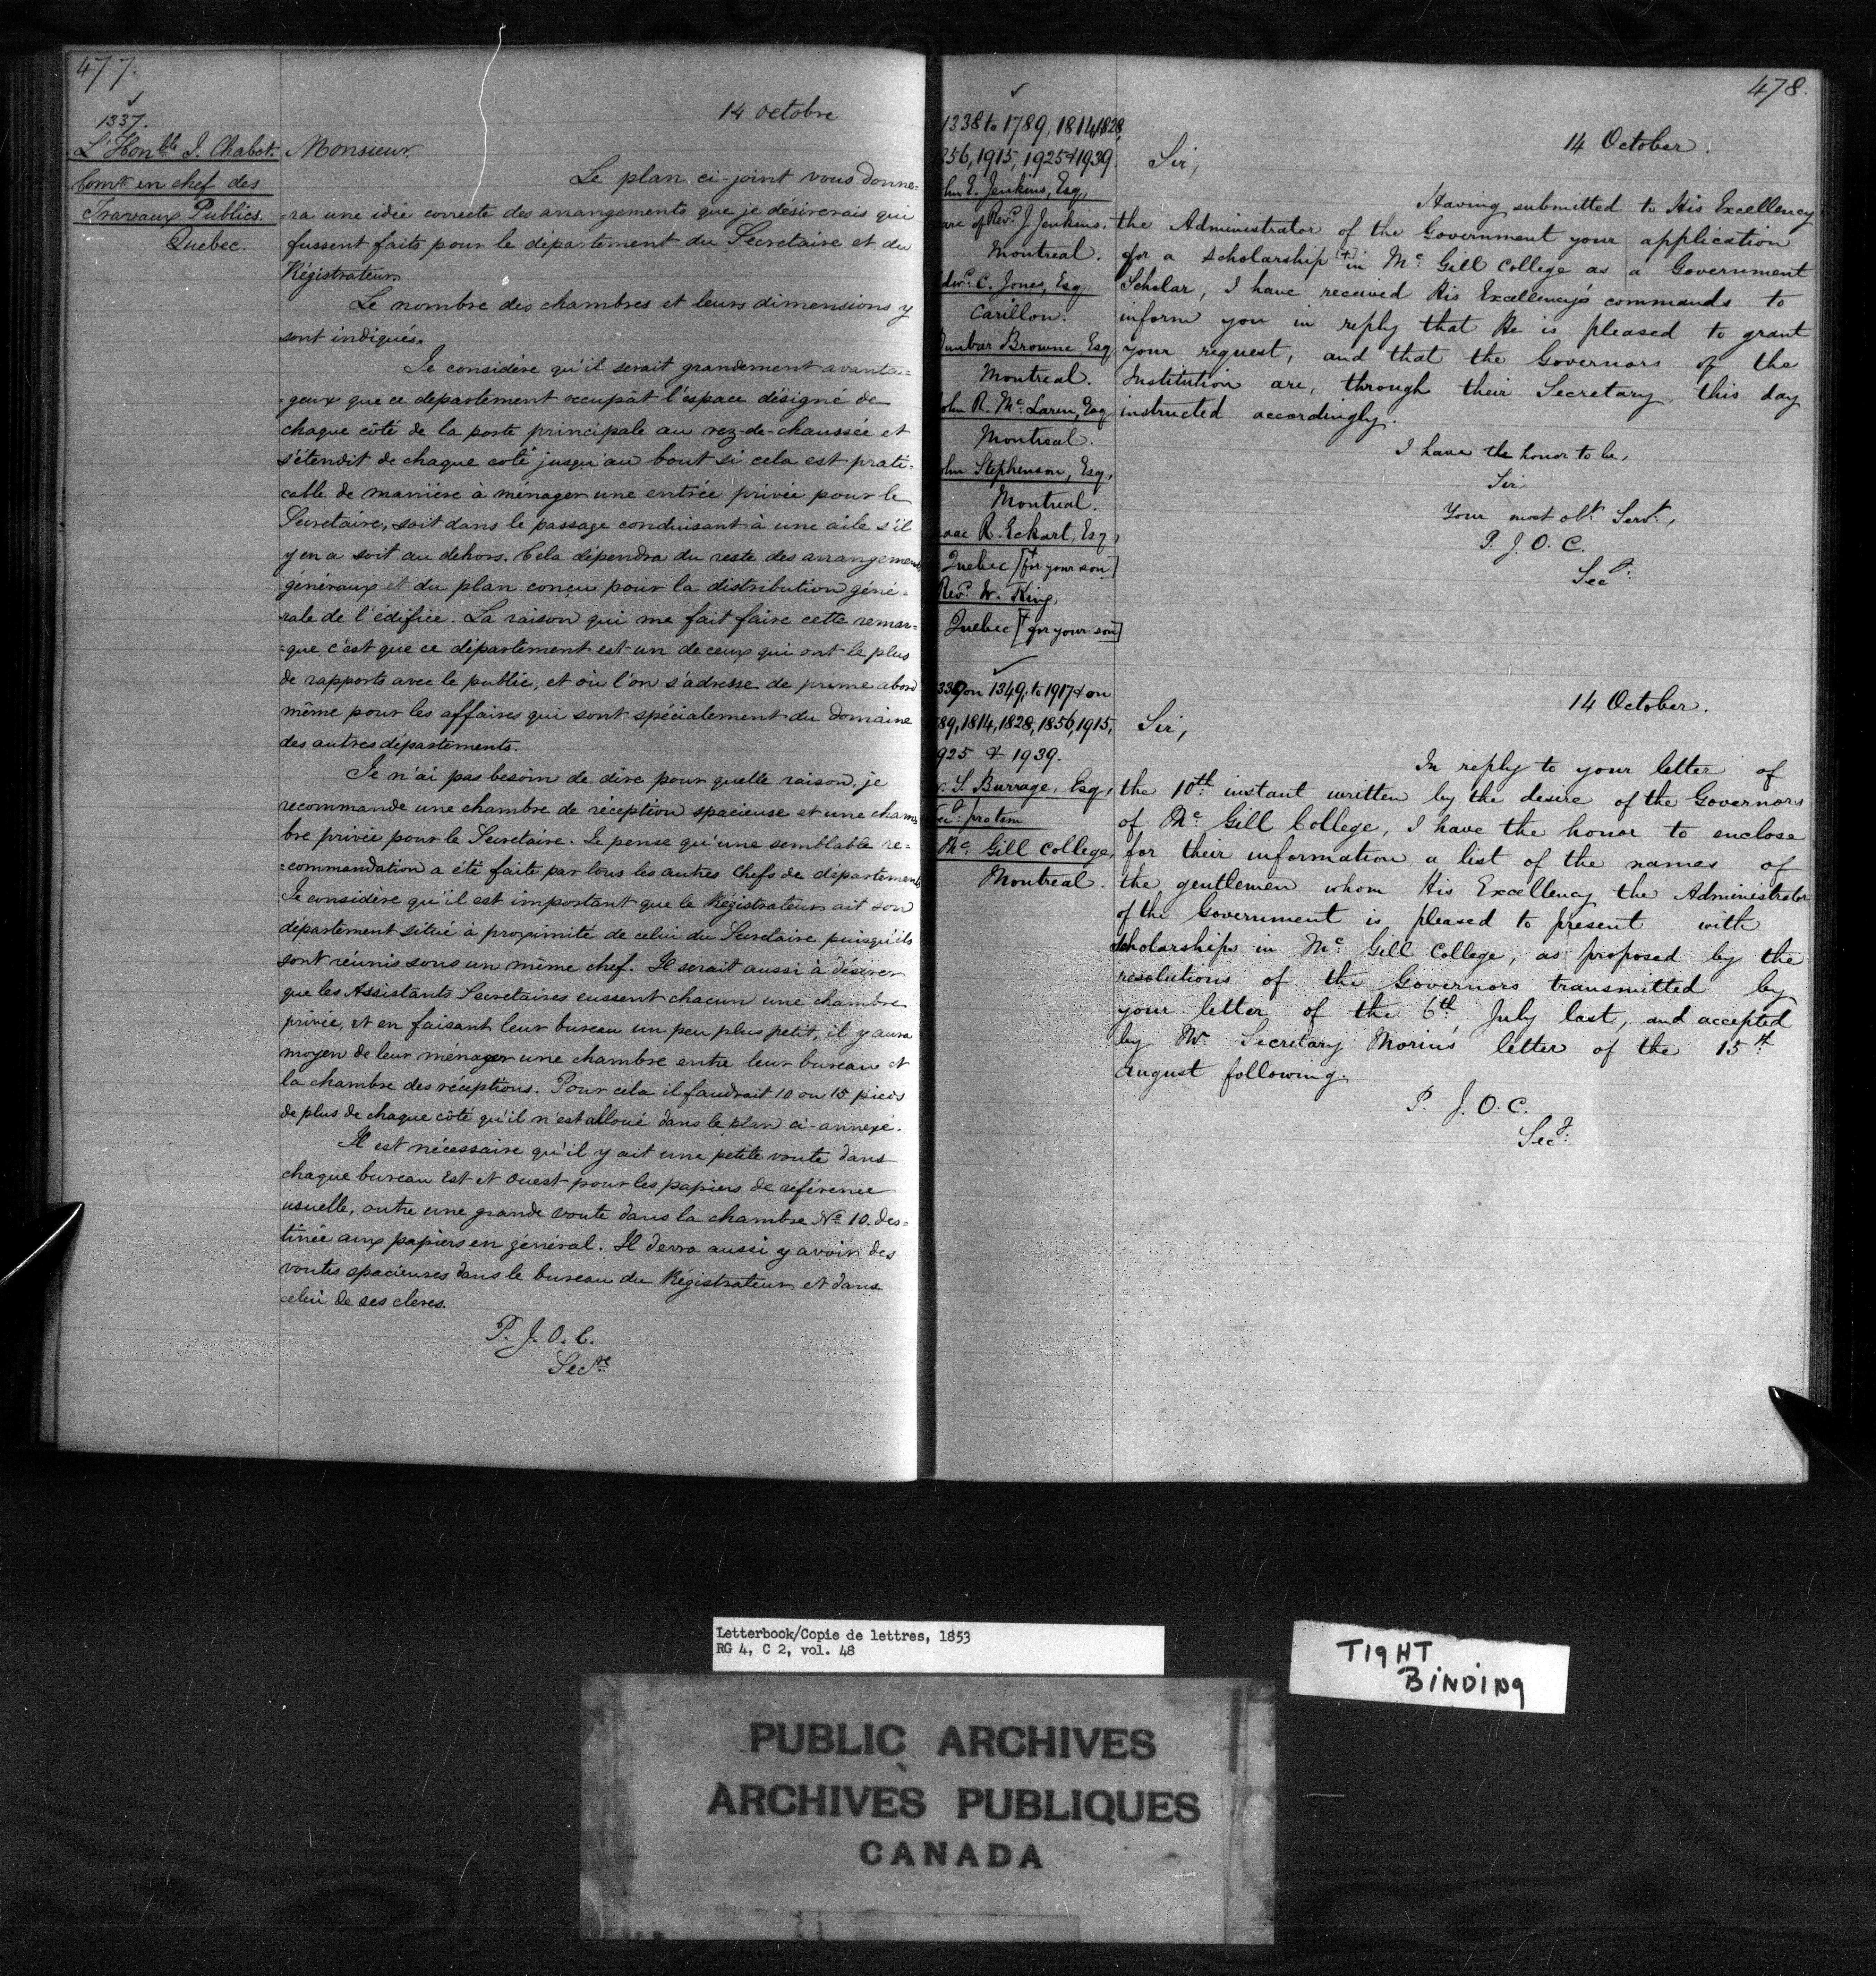 477.
1337.
L'Honble J. Chabot.
Comre en chef des
Travaux Publics.
Quebec.
14 Octobre
Monsieur,
Le plan ci-joint vous donne=
=ra une idée correcte des arrangements que je désirerais qui
fussent faits pour le département du Secretaire et du
Régistrateur.
Le nombre des chambres et leurs dimensions y
sont indiqués.
Je considère qu'il serait grandement avanta=
=geux que ce departement occupât l'espace désigné de
chaque côté de la porte principale au rez-de-chaussée et
s'étendit de chaque coté jusqu'au bout si cela est prati=
cable de manière à ménager une entrée privée pour le
Secretaire, soit dans le passage conduisant à une aile s'il
y en a soit au dehors. Cela dépendra du reste des arrangements
généraux et du plan conçu pour la distribution géné=
rale de l'édifice. La raison qui me fait faire cette remar=
=que c'est que ce département est un de ceux qui ont le plus
de rapports avec le public, et où l'on s'adresse de prime abord
même pour les affaires qui sont spécialement du domaine
des autres départements.
Je n'ai pas besoin de dire pour quelle raison, je
recommande une chambre de réception spacieuse et une cham=
bre privée pour le Secretaire. Je pense qu'une semblable re=
=commandation a été faite par tous les autres Chefs de départements
Je considère qu'il est important que le Régistrateur ait son
département situé à proximité de celui du Secretaire puisqu'ils
sont réunis sous un même chef. Il serait aussi à désirer
que les Assistants Secretaires eussent chacun une chambre
privée, et en faisant leur bureau un peu plus petit, il y aura
moyen de leur ménager une chambre entre leur bureau et
la chambre des réceptions. Pour cela il faudrait 10 ou 15 pieds
de plus de chaque côté qu'il n'est alloué dans le plan ci-annexé.
Il est nécessaire qu'il y ait une petite voute dans
chaque bureau Est et Ouest pour les papiers de référence
usuelle, outre une grande voute dans la chambre No 10. des=
tinée aux papiers en général. Il devra aussi y avoir des
voutes spacieuses dans le bureau du Régistrateur et dans
celui de ses clercs.
P. J. O. C.
Secre
478.
1338 to 1789, 1814, 1828,
856, 1915, 1925 & 1939.
ohn E. Jenkins, Esq,
are of Revd J. Jenkins,
Montreal.
dwd C. Jones, Esq
Carillon.
Dunbar Browne, Esq
Montreal.
ohn R. Mc Laren, Esq
Montreal.
ohn Stephenson, Esq,
Montreal.
saac R. Eckart, Esq,
Quebec [+ for your son]
Revd W. King,
Quebec [+ for your son]
14 October.
Sir,
Having submitted to His Excellency
the Administrator of the Government your application
for a scholarship [+] in Mc Gill College as a Government
Scholar, I have received His Excellency's commands to
inform you in reply that He is pleased to grant
your request, and that the Governors of the
Institution are, through their Secretary, this day
instructed accordingly.
I have the honor to be,
Sir
Your most obt Servt,
P. J. O. C.
Secy
339 on 1349, to 1917 & on
89, 1814, 1828, 1856, 1915,
925 & 1939.
. Burrage, Esq,
protem
Mc Gill College,
Montreal.
14 October.
Sir,
In reply to your letter of
the 10th instant written by the desire of the Governors
of Mc Gill College, I have the honor to enclose
for their information a list of the names of
the gentlemen whom His Excellency the Administrator
of the Government is pleased to present with
scholarships in Mc Gill College, as proposed by the
resolutions of the Governors transmitted by
your letter of the 6th July last, and accepted
by Mr Secretary Morin's letter of the 15th
August following.
P. J. O. C.
Secy
Letterbook/Copie de lettres, 1853
RG 4, C 2, vol. 48
TIGHT
BINDING
PUBLIC ARCHIVES
ARCHIVES PUBLIQUES
CANADA